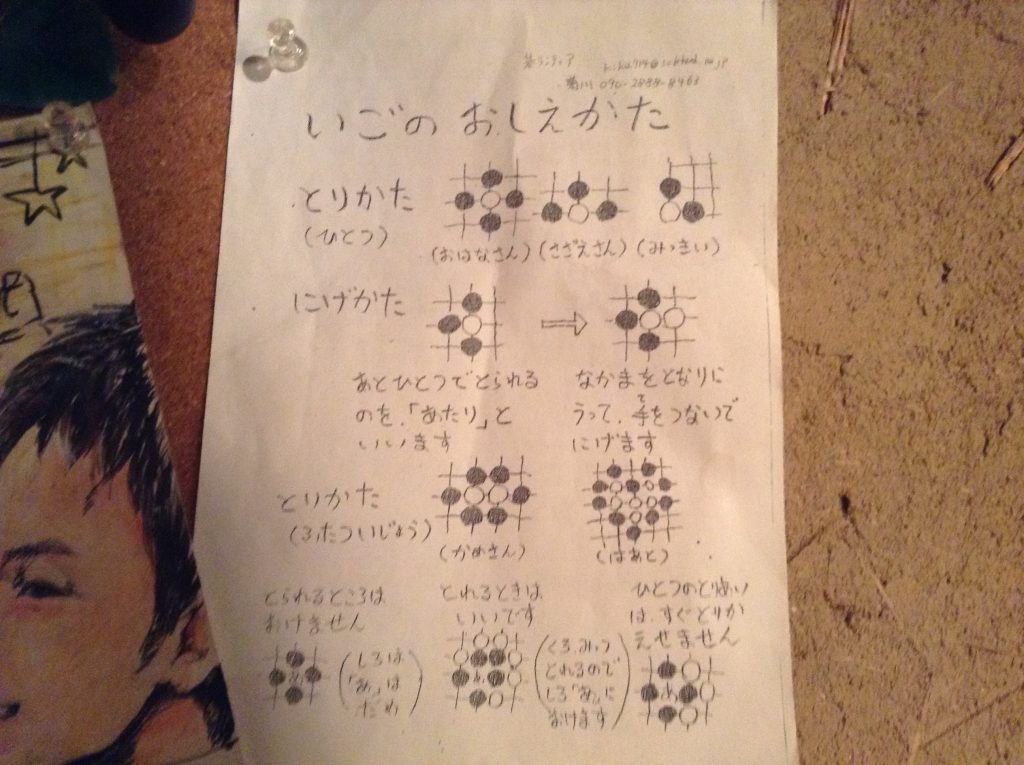 碁ランティア
菊川 090-2888-8463
いごのおしえかた
とりかた
(ひとつ)
(おはなさん) (さざえさん) (みっきい)
にげかた
あとひとつでとられる
のを、「あたり」と
いいます
なかまをとなりに
うって、手をつないで
て
にげます
とりかた
(ふたついじょう)
(かめさん)
(はあと)
とられるところは
おけません
(しろは
「あ」は
だめ)
あ
とれるときは
いいです
あ
(くろ、みっつ
とれるので
しろ「あ」に
おけます)
ひとつのとりあい
は、すぐとりか
えせません
あ